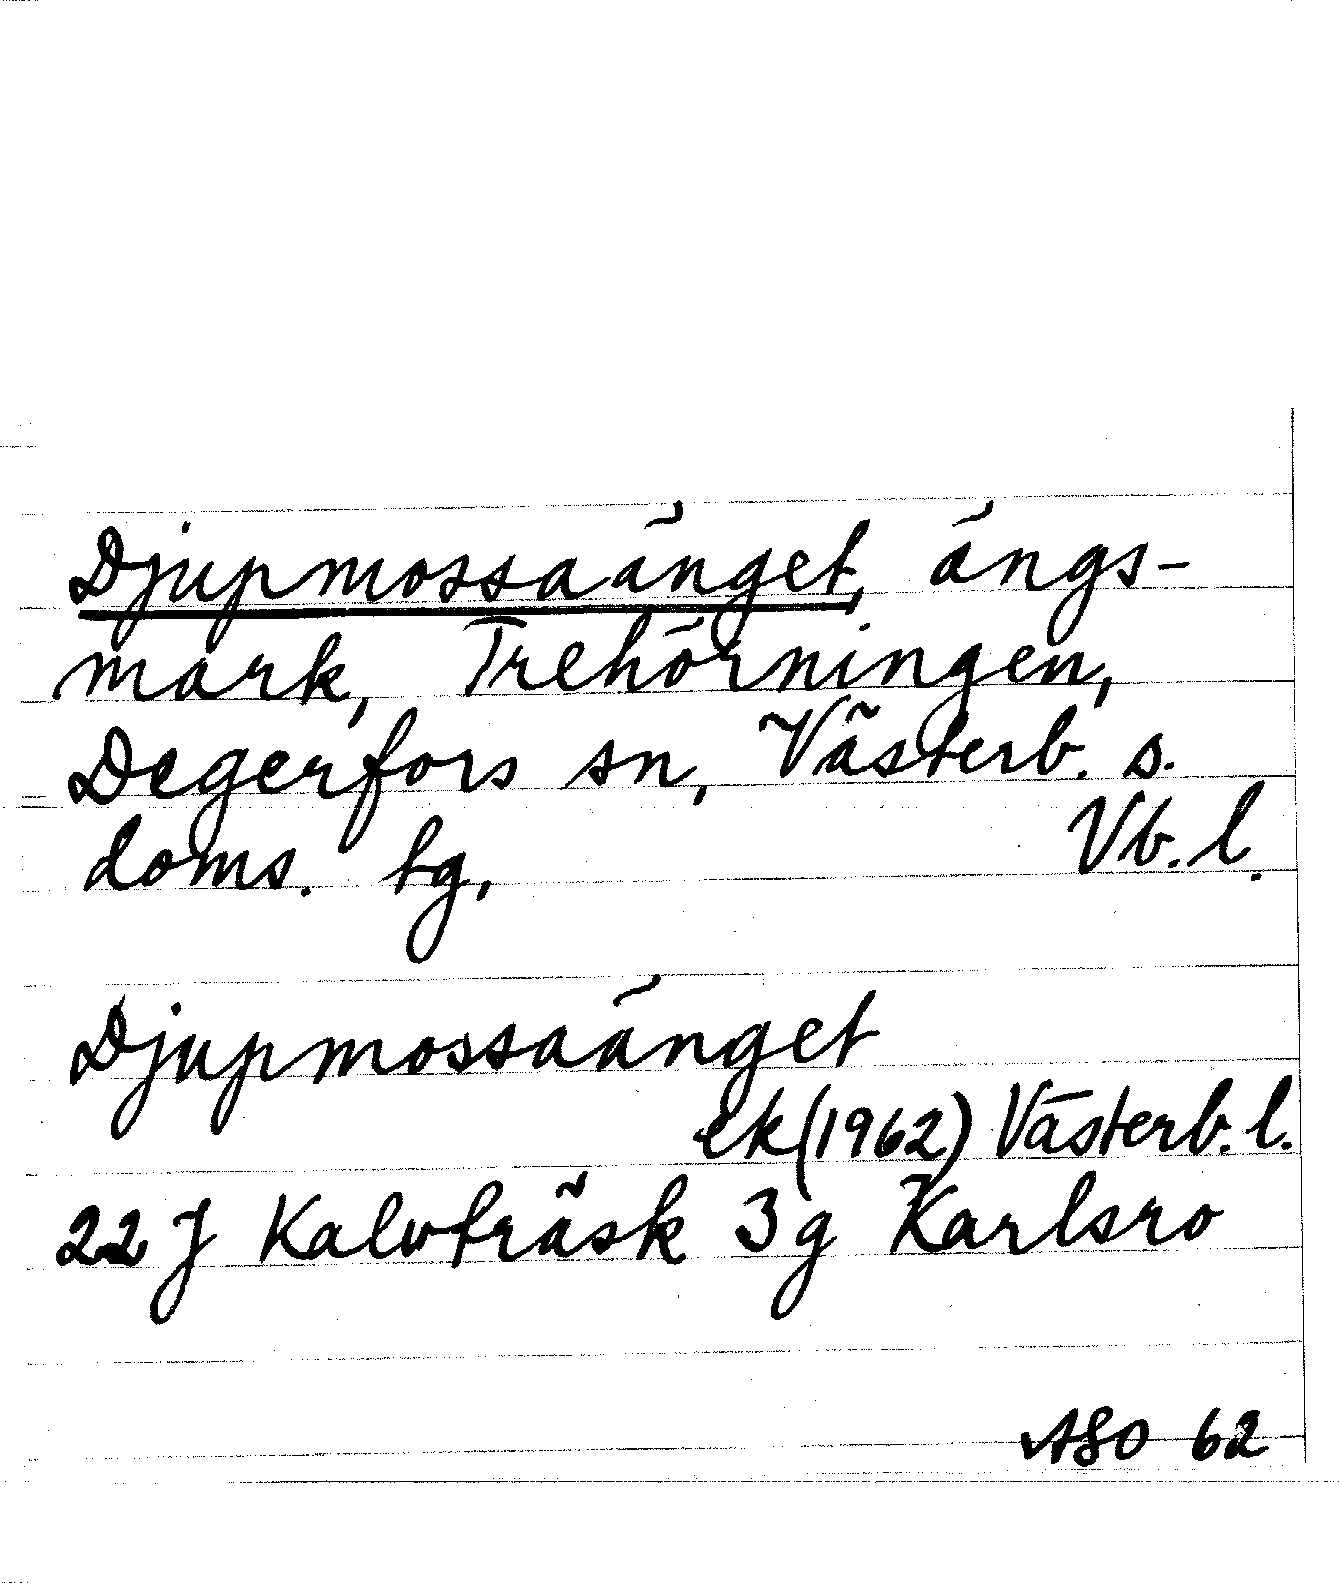 Djupmossaänget, ängs-
mark, Trehörningen,
Degerfors sn, Västerb. s.
doms. tg, Vb. l.
Djupmossaänget
ek (1962) Västerb. l.
22 J Kalvträsk 3 g Karlsro
ASO 62